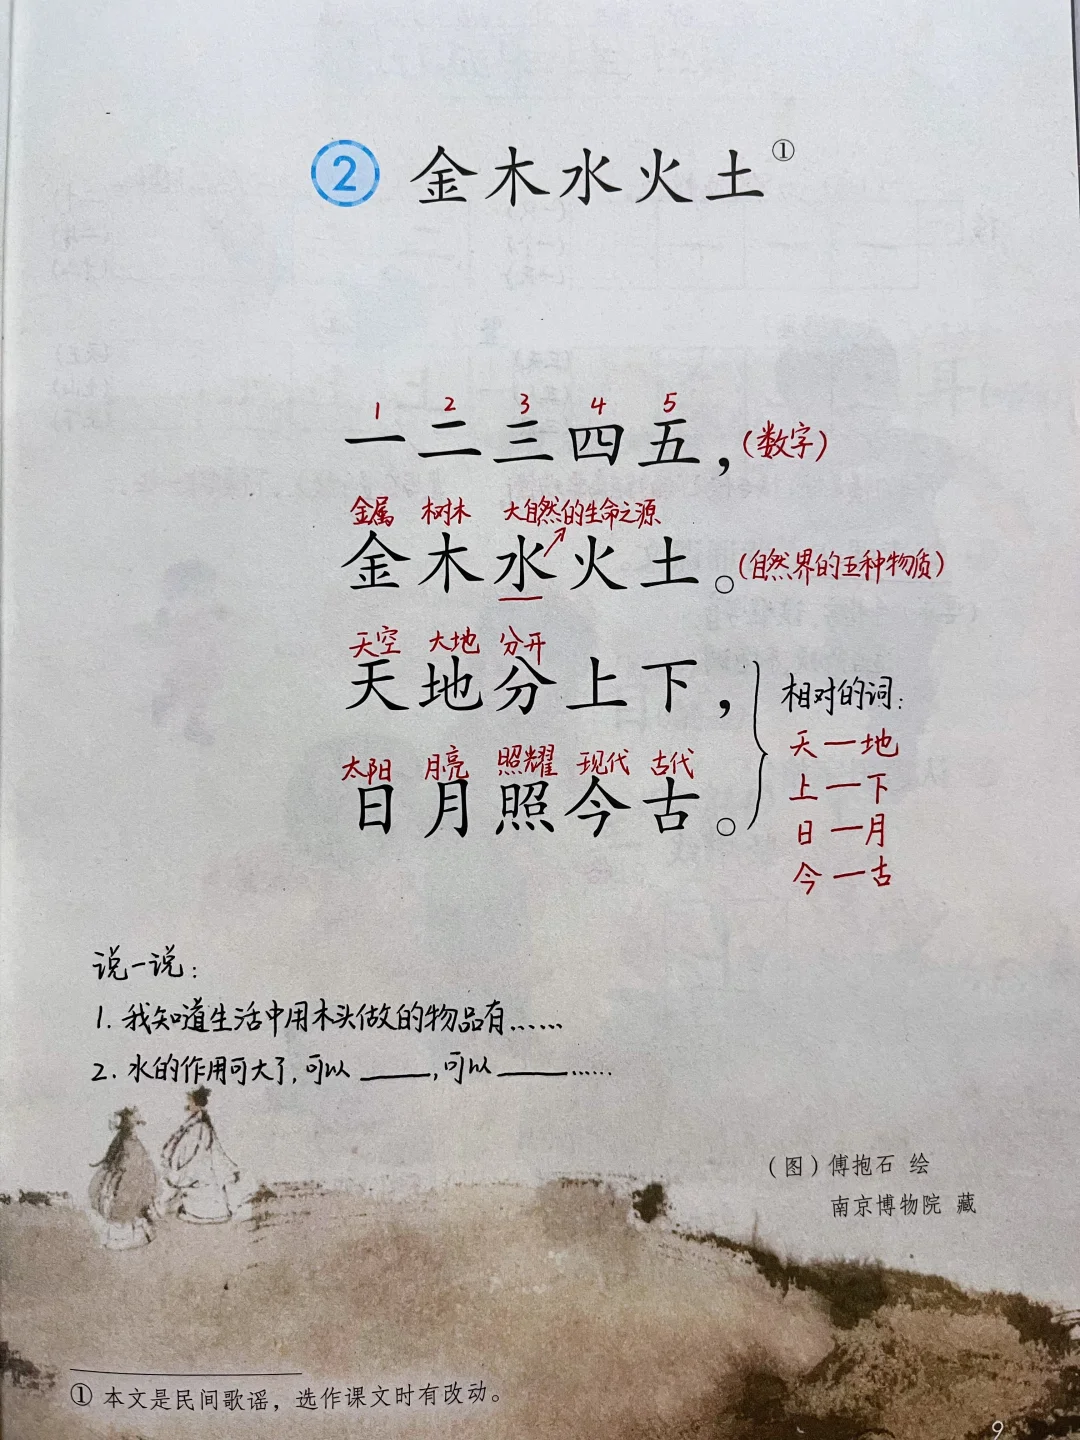 2 金木水火土①
1 2 3 4 5
一二三四五，(数字)
金属 树木 大自然的生命之源
金木水火土。(自然界的五种物质)
天空 大地 分开
天地分上下，
太阳 月亮 照耀 现代 古代
日月照今古。
相对的词：
天—地
上—下
日—月
今—古
说一说：
1. 我知道生活中用木头做的物品有……
2. 水的作用可大了，可以____，可以____……
（图）傅抱石 绘
南京博物院 藏
① 本文是民间歌谣，选作课文时有改动。
9